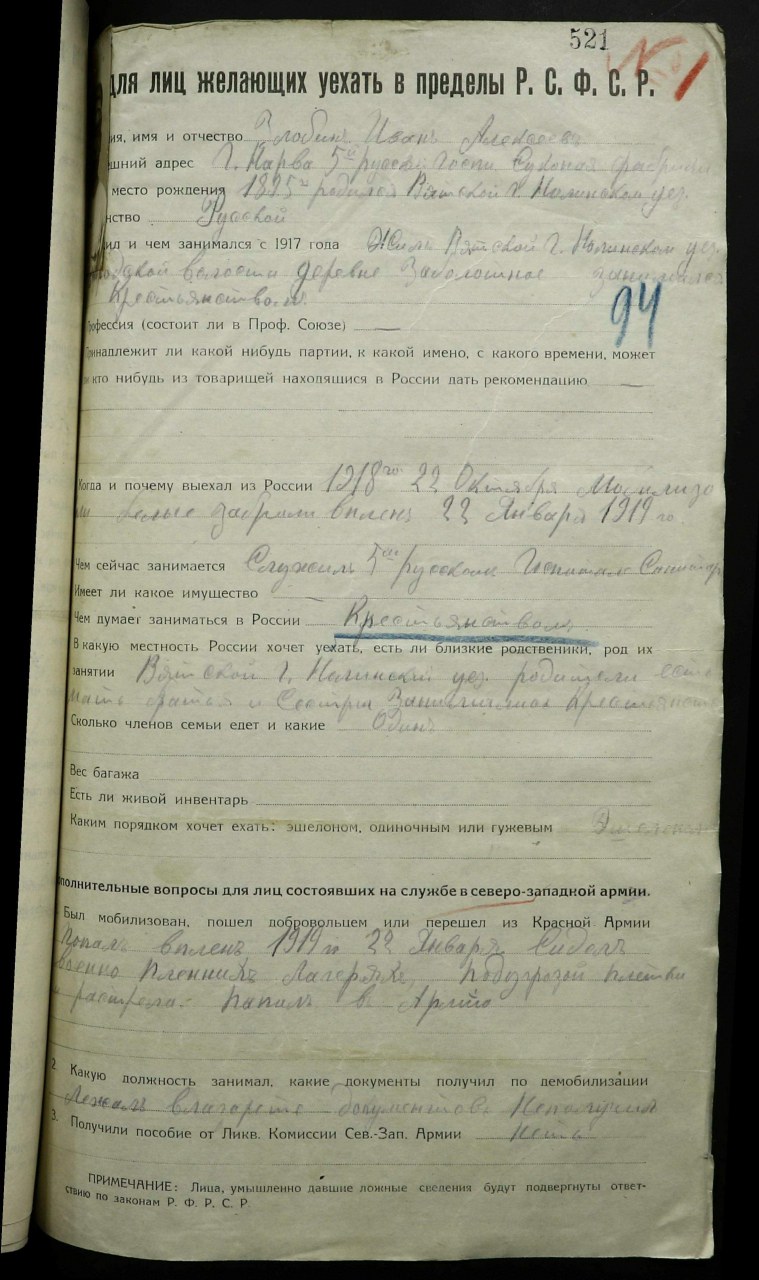 521
№ 1
для лиц желающих уехать в пределы Р. С. Ф. С. Р.
ия, имя и отчество Злобинъ Иванъ Алексеевъ
шний адрес Г. Нарва 5й русский Госпи Суконая фабрика
место рождения 1895 г родился Вятской г. Нолинскою уез.
нство Русской
ил и чем занимался с 1917 года Жилъ Вятской Г. Нолинском уез.
волости деревне Заболотное занимался
Крестьянством
94
Профессия (состоит ли в Проф. Союзе) —
Принадлежит ли какой нибудь партии, к какой имено, с какого времени, может
кто нибудь из товарищей находящися в России дать рекомендацию —
Когда и почему выехал из России 1918 го 22 Октября Мобилизо
белые забрали вплен 22 Января 1919 го.
Чем сейчас занимается Служилъ 5ой русском Госпитале Санитар
Имеет ли какое имущество —
Чем думает заниматься в России Крестьянством
В какую местность России хочет уехать, есть ли близкие родственики, род их
занятии Вятской г. Нолинский уез. родители есть
мать братья и Сестры Занимаются Крестьянст
Сколько членов семьи едет и какие Одинъ
Вес багажа
Есть ли живой инвентарь
Каким порядком хочет ехать: эшелоном, одиночным или гужевым Эшелоном
полнительные вопросы для лиц состоявших на службе в северо-западной армии.
Был мобилизован, пошел добровольцем или перешел из Красной Армии
Попалъ впленъ 1919 го 22 Января Сиделъ
военно пленникъ Лагеряхе, подугрозой плетки
и растрела. папалъ в Армию
2. Какую должность занимал, какие документы получил по демобилизации
Лежалъ влазарете документовъ Неполучил
3. Получили пособие от Ликв. Комиссии Сев.-Зап. Армии Нетъ
ПРИМЕЧАНИЕ: Лица, умышленно давшие ложные сведения будут подвергнуты ответ-
ствию по законам Р. Ф. Р. С. Р.